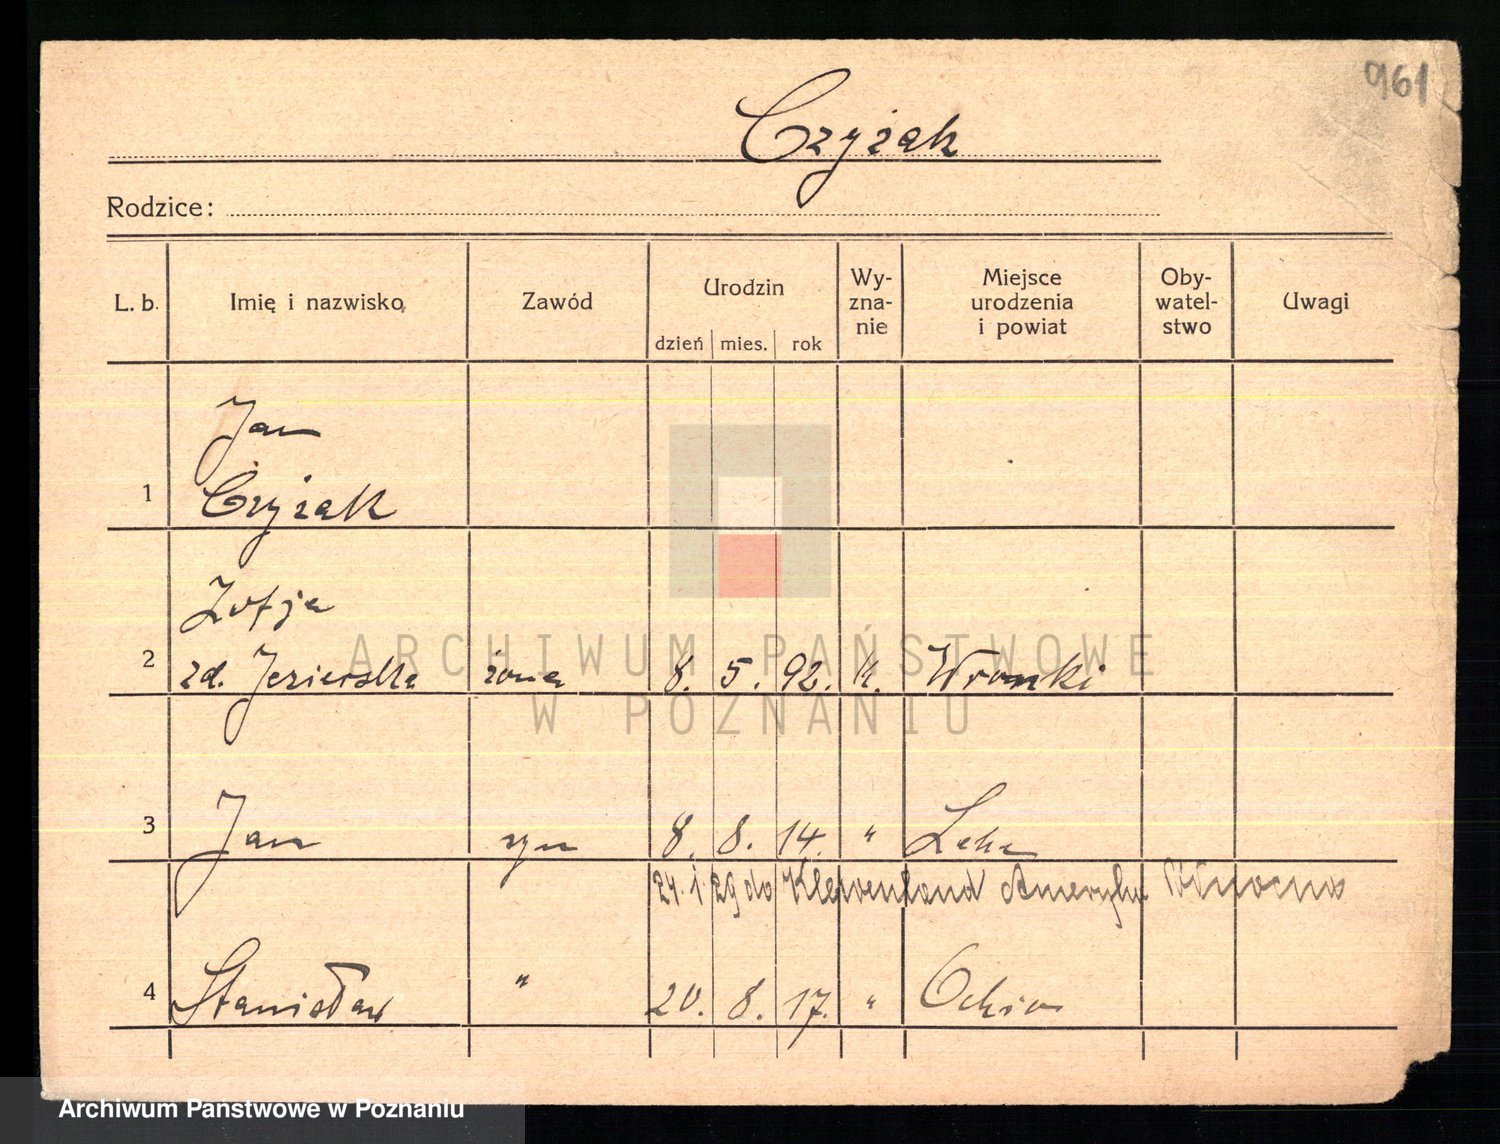 961
Czyżak
Rodzice:
L. b. Imię i nazwisko Zawód Urodzin Wy-zna-nie Miejsce urodzenia i powiat Oby-watel-stwo Uwagi
dzień mies. rok
Jan
1 Czyżak
Zofja
2 zd. Jezierska żona 8. 5. 92. k. Wronki
3 Jan syn 8. 8. 14. "
24. 1. 29 do Ameryka
4 Stanisław " 20. 8. 17. "
ARCHIWUM PAŃSTWOWE
W POZNANIU
Archiwum Państwowe w Poznaniu